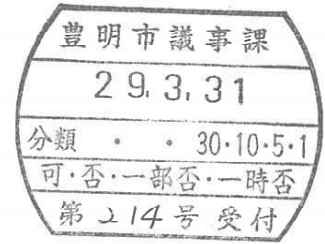 豊明市議事課
29.3.31
分類 ・ ・ 30・10・5・1
可・否・一部否・一時否
第214号 受付